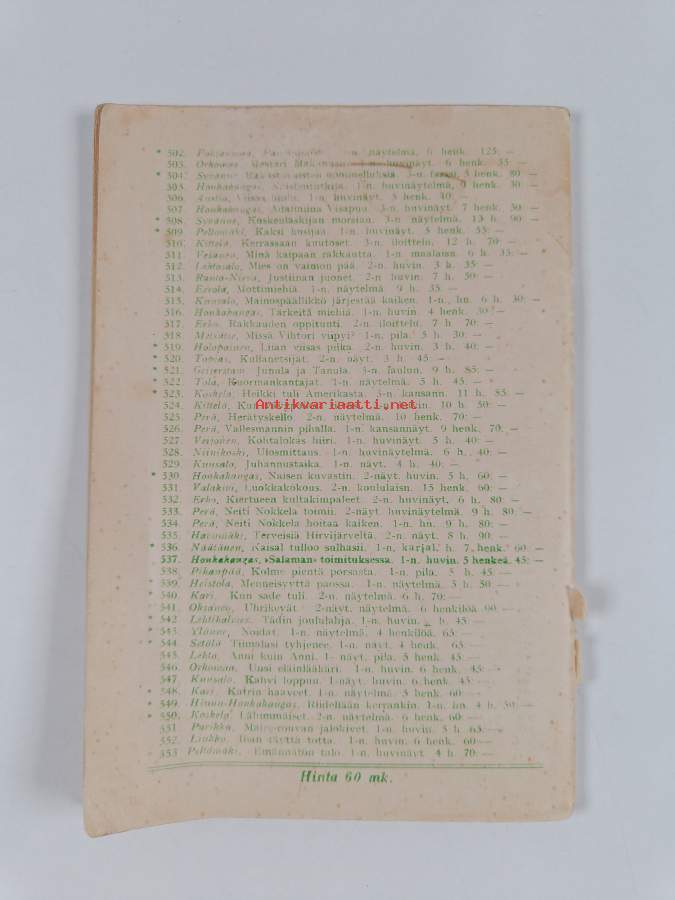 * 502. näytelmä. 6 henk. 125: —
503. Orkomaa, Mestari huvinäyt. 6 henk. 35: —
* 504. 3-n. farssi, 5 henk. 80: —
505. Honkahangas, 1-n. huvinäytelmä, 30: —
506. 1-n. huvinäyt. 3 henk. 40: —
507. Honkahangas, Adalmiina Visapuu. 3-n. huvinäyt. 7 henk. 30:
* 508. Koskenlaskijan morsian. 3-n. näytelmä. 13 h. 90: —
* 509. Peltomäki, Kaksi kosijaa. 1-n. huvinäyt. 5 henk. 55: —
510. Kittelä, Kerrassaan kuutoset. 3-n. iloittelu. 12 h. 70: —
511. Vesanen, Minä kaipaan rakkautta. 1-n. maalaisn. 6 h. 35: —
512. Lehtosalo, Mies on vaimon pää. 2-n. huvin. 3 h. 35: —
513. Ranto-Nieva, Justiinan juonet. 2-n. huvin. 7 h. 50: —
514. Eerola, Mottimiehiä. 1-n. näytelmä. 9 h. 35: —
515. Kunsalo, Mainospäällikkö järjestää kaiken. 1-n. hn. 6 h. 30: —
516. Honkahangas, Tärkeitä miehiä. 1-n. huvin. 4 henk. 30: —
517. Erho, Rakkauden oppitunti. 2-n. iloittelu. 7 h. 70: —
518. Missä Vihtori viipyi? 1-n. pila. 5 h. 30: —
* 519. Holopainen, Liian viisas piika. 2-n. huvin. 3 h. 40: —
* 520. Tobias, Kullanetsijät. 2-n. näyt. 3 h. 45: —
* 521. Geijerstam, Junula ja Tanula. 3-n. laulun. 9 h. 85: —
* 522. Tola, Kuormankantajat. 1-n. näytelmä. 5 h. 45: —
* 523. Koskela, Heikki tuli Amerikasta. 3-n. kansann. 11 h. 85: —
524. Kittelä, huvin. 10 h. 50: —
Antikvariaatti.net
525. Perä, Herätyskello. 2-n. näytelmä. 10 henk. 70: —
526. Perä, Vallesmannin pihalla. 1-n. kansannäyt. 9 henk. 70: —
527. Veijonen, Kohtalokas hiiri. 1-n. huvinäyt. 5 h. 40: —
528. Niinikoski, Ulosmittaus. 1-n. huvinäytelmä. 6 h. 40: —
529. Kunsalo, Juhannustaika. 1-n. näyt. 4 h. 40: —
* 530. Honkahangas, Naisen kuvastin. 2-näyt. huvin. 5 h. 60: —
531. Valakivi, Luokkakokous. 2-n. koululaisn. 15 henk. 60: —
532. Erho, Kiertueen kultakimpaleet. 2-n. huvinäyt. 6 h. 80: —
533. Perä, Neiti Nokkela toimii. 2-näyt. huvinäytelmä. 9 h. 80: —
534. Perä, Neiti Nokkela hoitaa kaiken. 1-n. hn. 9 h. 80: —
535. Harjumäki, Terveisiä Hirvijärveltä. 2-n. näyt. 8 h. 90: —
* 536. Näätänen, Kaisal tulloo sulhasii. 1-n. karjal. h. 7 henk. 60: —
537. Honkahangas, »Salaman» toimituksessa. 1-n. huvin. 5 henkeä. 45: —
538. Pihanpää, Kolme pientä porsasta. 1-n. pila. 5 h. 45: —
* 539. Heistola, Menneisyyttä paossa. 1-n. näytelmä. 3 h. 50: —
* 540. Kari, Kun sade tuli. 2-n. näytelmä. 6 h. 70: —
541. Oksanen, Uhrikevät. 2-näyt. näytelmä. 6 henkilöä 90: —
* 542. Lehtihalmes, Tädin joululahja. 1-n. huvin. h. 45: —
* 543. Ylönen, Noidat. 1-n. näytelmä, 4 henkilöä. 65: —
* 544. Setälä, Tiimalasi tyhjenee. 1-n. näyt. 4 henk. 65: —
545. Lehto, Anni kuin Anni. 1-näyt. pila. 5 henk. 45: —
546. Orkomaa, Uusi eläinlääkäri. 1-n. huvin. 6 henk. 45: —
547. Kunsalo, Kahvi loppuu. 1-näyt. huvin. 6 henk. 45: —
* 548. Kari, Katrin haaveet. 1-n. näytelmä. 3 henk. 60: —
* 549. Hinnu-Honkahangas, Riidellään kerrankin. 1-n. hn. 4 h. 50: —
* 550. Koskela, Lähimmäiset. 2-n. näytelmä. 6 henk. 60: —
551. Purikka, Maire-rouvan jalokivet. 1-n. huvin. 5 h. 65: —
552. Liukko, Ihan täyttä totta. 1-n. huvin. 6 henk. 60: —
* 553. Peltomäki, Emännätön talo. 1-n. huvinäyt. 4 h. 70: —
Hinta 60 mk.